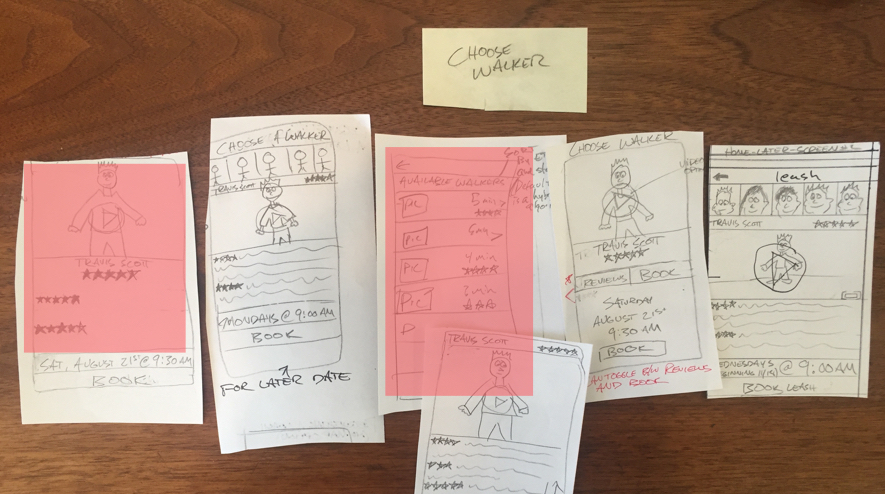 CHOOSE
WALKER
TRAVIS SCOTT
SAT, AUGUST 21ST @ 9:30 AM
BOOK
CHOOSE A WALKER
TRAVIS SCOTT
MONDAYS @ 9:00 AM
BOOK
FOR LATER DATE
AVAILABLE WALKERS
PIC
5 min
PIC
6 min
PIC
4 min
PIC
3 min
P
TRAVIS SCOTT
CHOOSE WALKER
TRAVIS SCOTT
REVIEWS BOOK
SATURDAY
AUGUST 21ST
9:30 AM
BOOK
TOGGLE B/W REVIEWS
AND BOOK
HOME-LATER-SCREENER
leash
TRAVIS SCOTT
WEDNESDAYS @ 9:00AM
BOOK LEASH